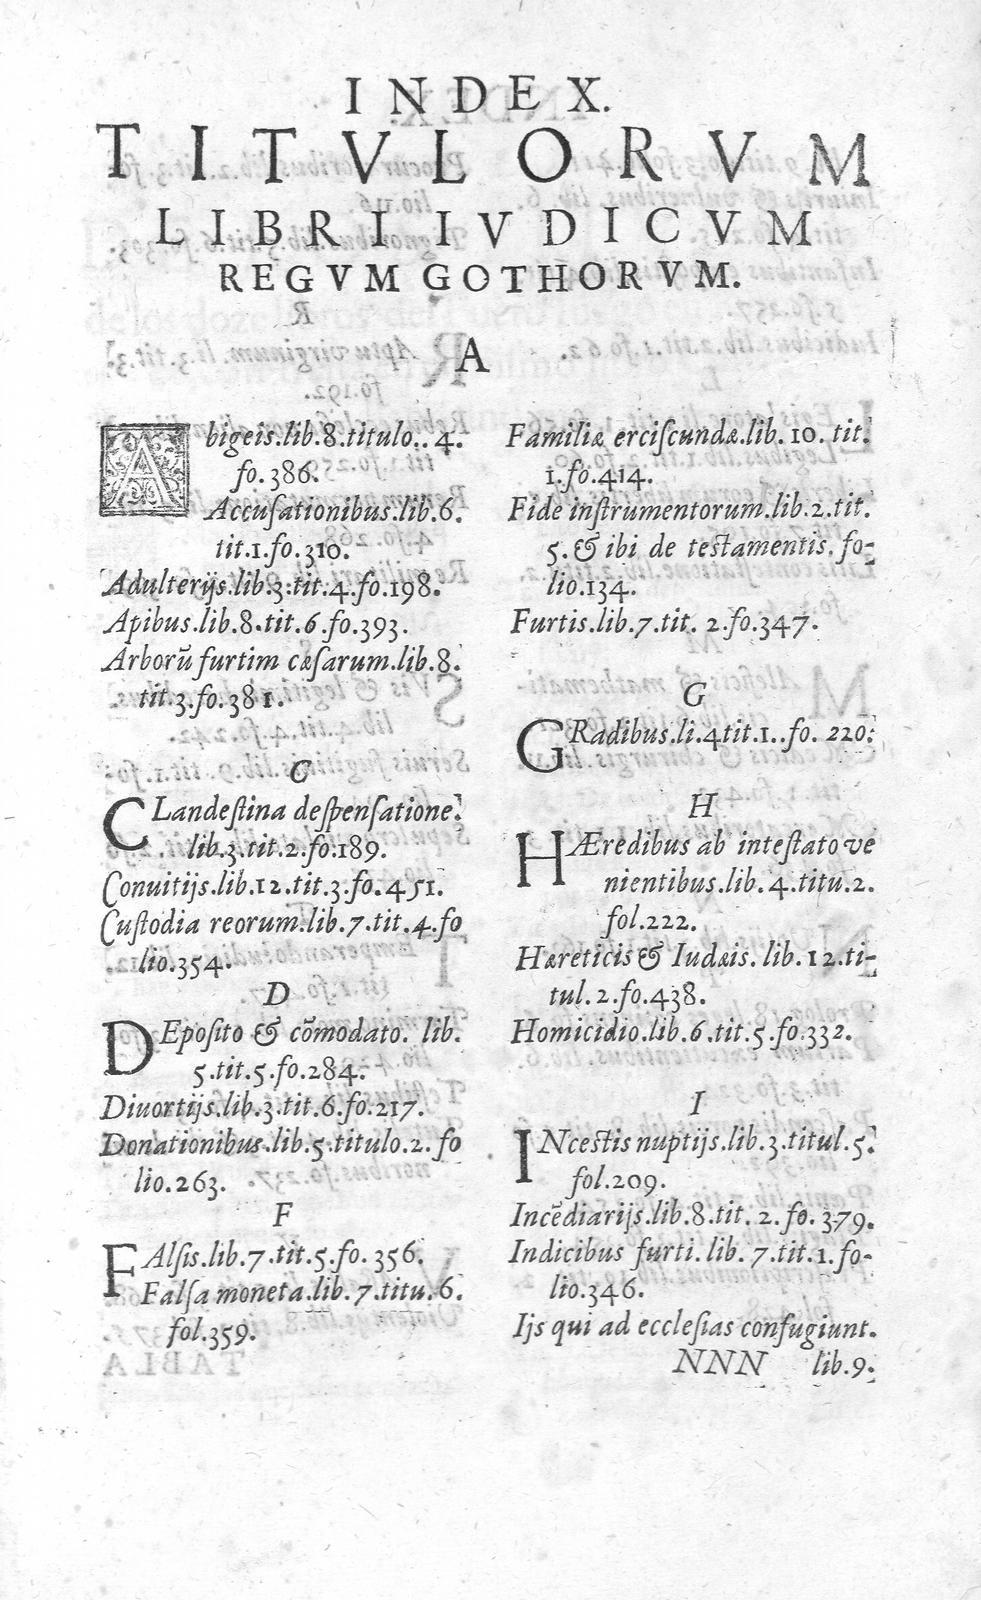 INDEX.
TITVLORVM
LIBRI IVDICVM
REGVM GOTHORVM.
A
Abigeis.lib.8.titulo..4.
fo.386.
Accusationibus.lib.6.
tit.1.fo.310.
Adulterijs.lib.3.tit.4.fo.198.
Apibus.lib.8.tit.6.fo.393.
Arborū furtim cæsarum.lib.8.
tit.3.fo.381.
C
CLandestina despensatione.
lib.3.tit.2.fo.189.
Conuitijs.lib.12.tit.3.fo.451.
Custodia reorum.lib.7.tit.4.fo
lio.354.
D
DEposito & cōmodato. lib.
5.tit.5.fo.284.
Diuortijs.lib.3.tit.6.fo.217.
Donationibus.lib.5.titulo.2.fo
lio.263.
F
FAlsis.lib.7.tit.5.fo.356.
Falsa moneta.lib.7.titu.6.
fol.359.
Familiæ erciscundæ.lib.10.tit.
1.fo.414.
Fide instrumentorum.lib.2.tit.
5.& ibi de testamentis. fo-
lio.134.
Furtis.lib.7.tit. 2.fo.347.
G
GRadibus.li.4tit.1..fo. 220.
H
HÆredibus ab intestato ve
nientibus.lib.4.titu.2.
fol.222.
Hæreticis & Iudæis. lib.12.ti-
tul.2.fo.438.
Homicidio.lib.6.tit.5.fo.332.
I
INcestis nuptijs.lib.3.titul.5.
fol.209.
Incēdiarijs.lib.8.tit. 2. fo. 379.
Indicibus furti.lib. 7.tit.1.fo-
lio.346.
Ijs qui ad ecclesias confugiunt.
NNN lib.9.